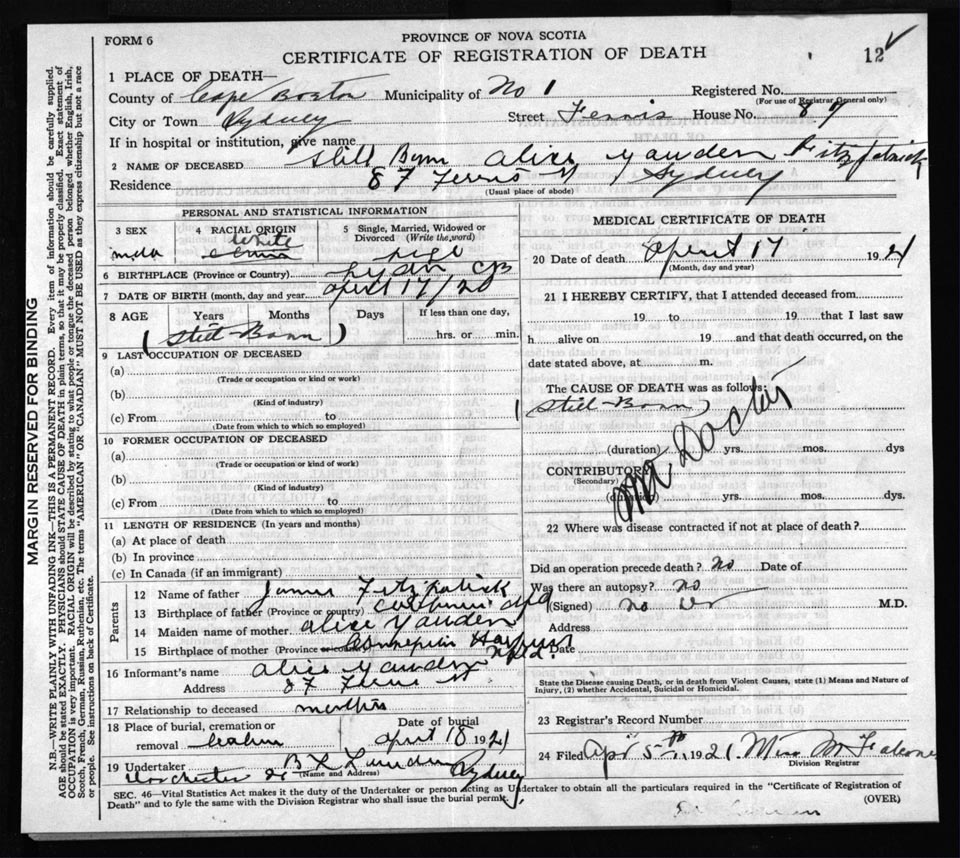 FORM 6
PROVINCE OF NOVA SCOTIA
CERTIFICATE OF REGISTRATION OF DEATH
12
1 PLACE OF DEATH—
County of Cape Breton Municipality of No 1 Registered No.
(For use of Registrar General only)
City or Town Sydney Street Ferris House No. 87
If in hospital or institution, give name
2 NAME OF DECEASED Still Born Alice Fitzpatrick
Residence 87 Ferris St Sydney
(Usual place of abode)
PERSONAL AND STATISTICAL INFORMATION
3 SEX
4 RACIAL ORIGIN
White
5 Single, Married, Widowed or Divorced (Write the word)
6 BIRTHPLACE (Province or Country) CB
7 DATE OF BIRTH (month, day and year) April 17/20
8 AGE Years Months Days If less than one day,
hrs. or min.
(Still-Born)
9 LAST OCCUPATION OF DECEASED
(a)
(Trade or occupation or kind or work)
(b)
(Kind of industry)
(c) From to
(Date from which to which so employed)
10 FORMER OCCUPATION OF DECEASED
(a)
(Trade or occupation or kind of work)
(b)
(Kind of industry)
(c) From to
(Date from which to which so employed)
11 LENGTH OF RESIDENCE (In years and months)
(a) At place of death
(b) In province
(c) In Canada (if an immigrant)
Parents
12 Name of father James Fitzpatrick
13 Birthplace of father (Province or country)
14 Maiden name of mother Alice
15 Birthplace of mother (Province or country) Nfld.
16 Informant's name Alice
Address 87 Ferris St
17 Relationship to deceased mother
18 Place of burial, cremation or removal
Date of burial
April 18 1921
19 Undertaker
(Name and Address)
Dorchester St Sydney
MEDICAL CERTIFICATE OF DEATH
20 Date of death April 17 1921
(Month, day and year)
21 I HEREBY CERTIFY, that I attended deceased from
19 to 19 that I last saw
h alive on 19 and that death occurred, on the
date stated above, at m.
The CAUSE OF DEATH was as follows:
(Still-Born)
No Doctor
(duration) yrs. mos. dys
CONTRIBUTORY
(Secondary)
(duration) yrs. mos. dys.
22 Where was disease contracted if not at place of death?
Did an operation precede death? no Date of
Was there an autopsy? no
(Signed) no Dr M.D.
Address
Date
State the Disease causing Death, or in death from Violent Causes, state (1) Means and Nature of
Injury, (2) whether Accidental, Suicidal or Homicidal.
23 Registrar's Record Number
24 Filed Apr 1921. Miss M Falconer
Division Registrar
SEC. 46—Vital Statistics Act makes it the duty of the Undertaker or person acting as Undertaker to obtain all the particulars required in the "Certificate of Registration of
Death" and to fyle the same with the Division Registrar who shall issue the burial permit.
(OVER)
MARGIN RESERVED FOR BINDING
N.B.—WRITE PLAINLY WITH UNFADING INK—THIS IS A PERMANENT RECORD. Every item of information should be carefully supplied.
AGE should be stated EXACTLY. PHYSICIANS should STATE CAUSE OF DEATH in plain terms, so that it may be properly classified. Exact statement of
OCCUPATION is very important. RACIAL ORIGIN will be described by stating to what people or tongue the deceased person belonged whether English, Irish,
Scotch, French, German, Russian, Ruthenian, etc. The terms "AMERICAN" OR "CANADIAN" MUST NOT BE USED as they express citizenship but not a race
or people. See instructions on back of Certificate.